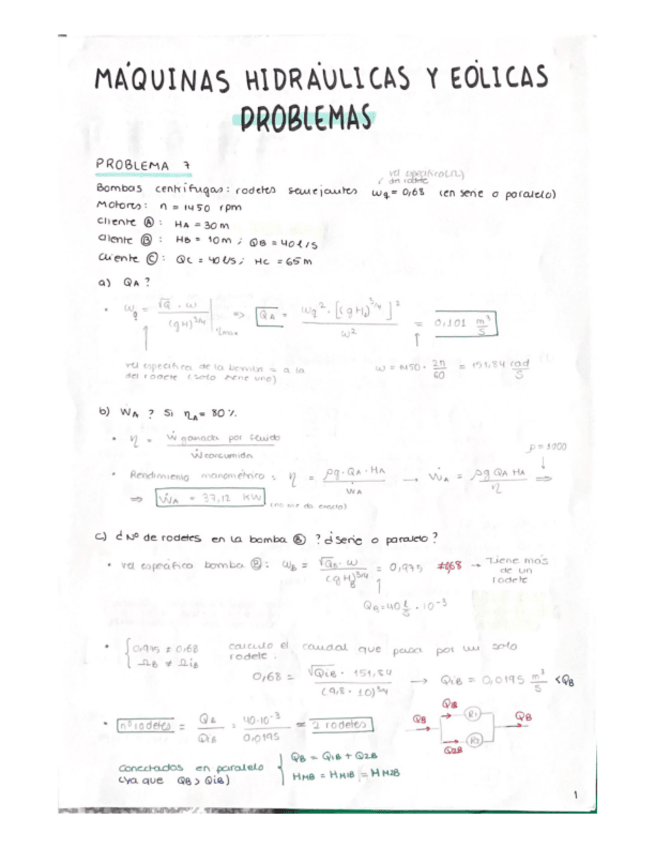 MÁQUINAS HIDRÁULICAS Y EÓLICAS
PROBLEMAS
PROBLEMA 7
vel específica (Ω)
del rodete
Bombas centrífugas: rodetes semejantes ωq = 0,68 (en serie o paralelo)
Motores: n = 1450 rpm
Cliente Ⓐ: HA = 30m
Cliente Ⓑ: HB = 10m ; QB = 40 l/s
Cliente Ⓒ: QC = 40 l/s ; HC = 65m
a) QA ?
• ωq = √Q · ω / (gH)^3/4 |ηmax ⇒ QA = ωq² · [(gHA)^3/4]² / ω² = 0,101 m³/s
vel específica de la bomba = a la
del rodete (solo tiene uno)
ω = 1450 · 2π/60 = 151,84 rad/s
b) ẆA ? Si ηA = 80 %
• η = Ẇ ganada por fluido / Ẇ consumida
ρ = 1000
• Rendimiento manométrico: η = ρg·QA·HA / ẆA → ẆA = ρg QA HA / η ⇒
⇒ ẆA = 37,12 KW (no me da exacto)
c) ¿Nº de rodetes en la bomba Ⓑ? ¿serie o paralelo?
• vel específica bomba Ⓑ: ωB = √QB · ω / (gHB)^3/4 = 0,975 ≠ 0,68 → Tiene más de un rodete
QB = 40 l/s · 10⁻³
• { 0,975 ≠ 0,68
ΩB ≠ ΩiB
calculo el caudal que pasa por un solo
rodete.
0,68 = √QiB · 151,84 / (9,8 · 10)^3/4 → QiB = 0,0195 m³/s < QB
• nº rodetes = QB / QiB = 40·10⁻³ / 0,0195 ≈ 2 rodetes
QB Q1B R1 QB
Q2B R2
Conectados en paralelo
(ya que QB > QiB)
{ QB = Q1B + Q2B
HmB = Hm1B = Hm2B
1